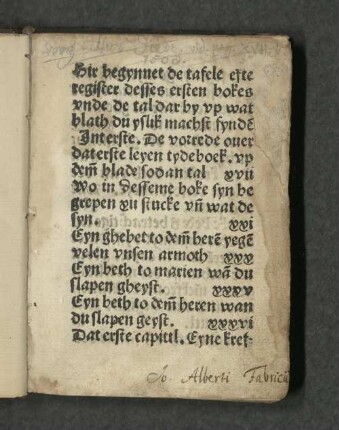 Hir begynnet de tafele efte
register desses ersten bokes
vnde de tal dar by vp wat
blath du yslik machst fyndē
Interste. De vorrede ouer
dat erste leyen tydeboek. vp
dem̄ blade sodan tal xvii
Wo in desseme boke syn be
grepen vii stucke vn̄ wat de
syn. xxi
Eyn ghebet to dem̄ herē yegē
velen vnsen armoth xxx
Eyn beth to marien wā du
slapen gheyst. xxxv
Eyn beth to dem̄ heren wan
du slapen geyst. xxxvi
Dat erste capittl. Eyne kref-
Jo. Alberti Fabricii